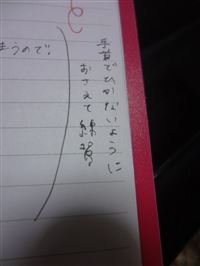 手首でひかないように
おさえて練習
まうので!